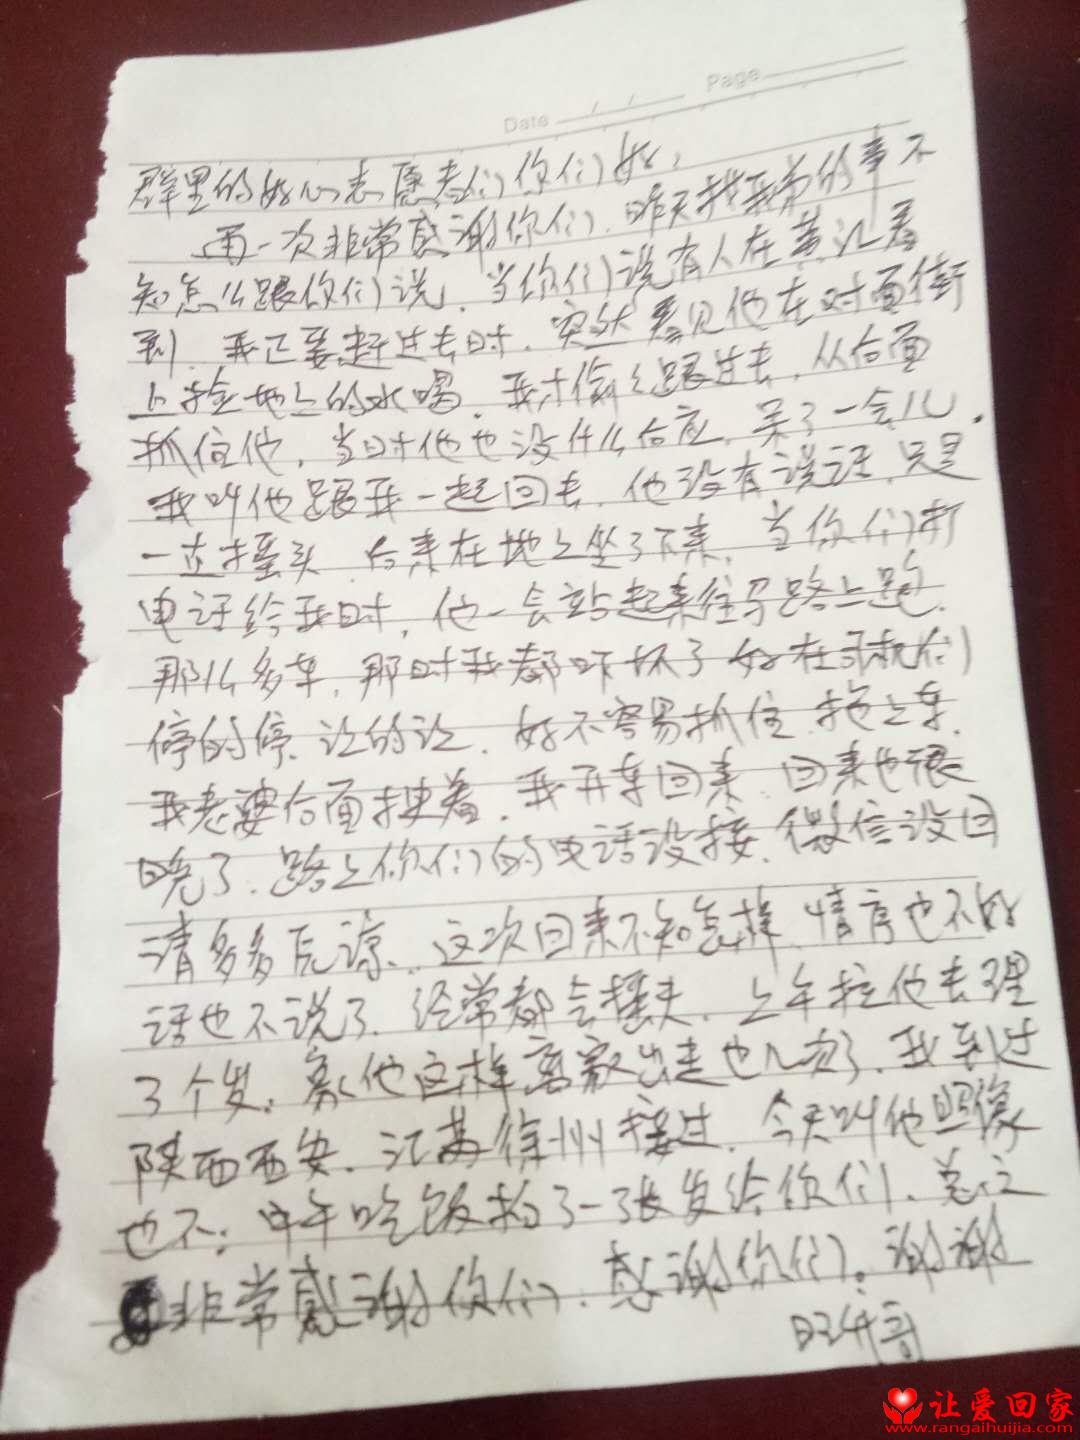 Date / / Page
群里的好心志愿者们你们好，
再一次非常感谢你们，昨天找我弟的事不
知怎么跟你们说，当你们说有人在黄江看
到，我正要赶过去时，突然看见他在对面街
上捡地上的水喝，我才偷偷跟过去，从后面
抓住他，当时他也没什么反应，呆了一会儿，
我叫他跟我一起回去，他没有说话，只是
一直摇头，后来在地上坐了下来，当你们打
电话给我时，他一会站起来往马路上跑，
那么多车，那时我都吓坏了好在司机们
停的停，让的让，好不容易抓住，拖上车，
我老婆后面拽着，我开车回来，回来也很
晚了，路上你们的电话没接，微信没回
请多多原谅，这次回来不知怎样，情序也不好
话也不说了，经常都会摇头，上午拉他去理
了个发，象他这样离家出走也几次了，我到过
陕西西安，江苏徐州接过，今天叫他照像
也不，中午吃饭拍了一张发给你们，总之
非常感谢你们，感谢你们，谢谢
让爱回家
www.rangaihuijia.com